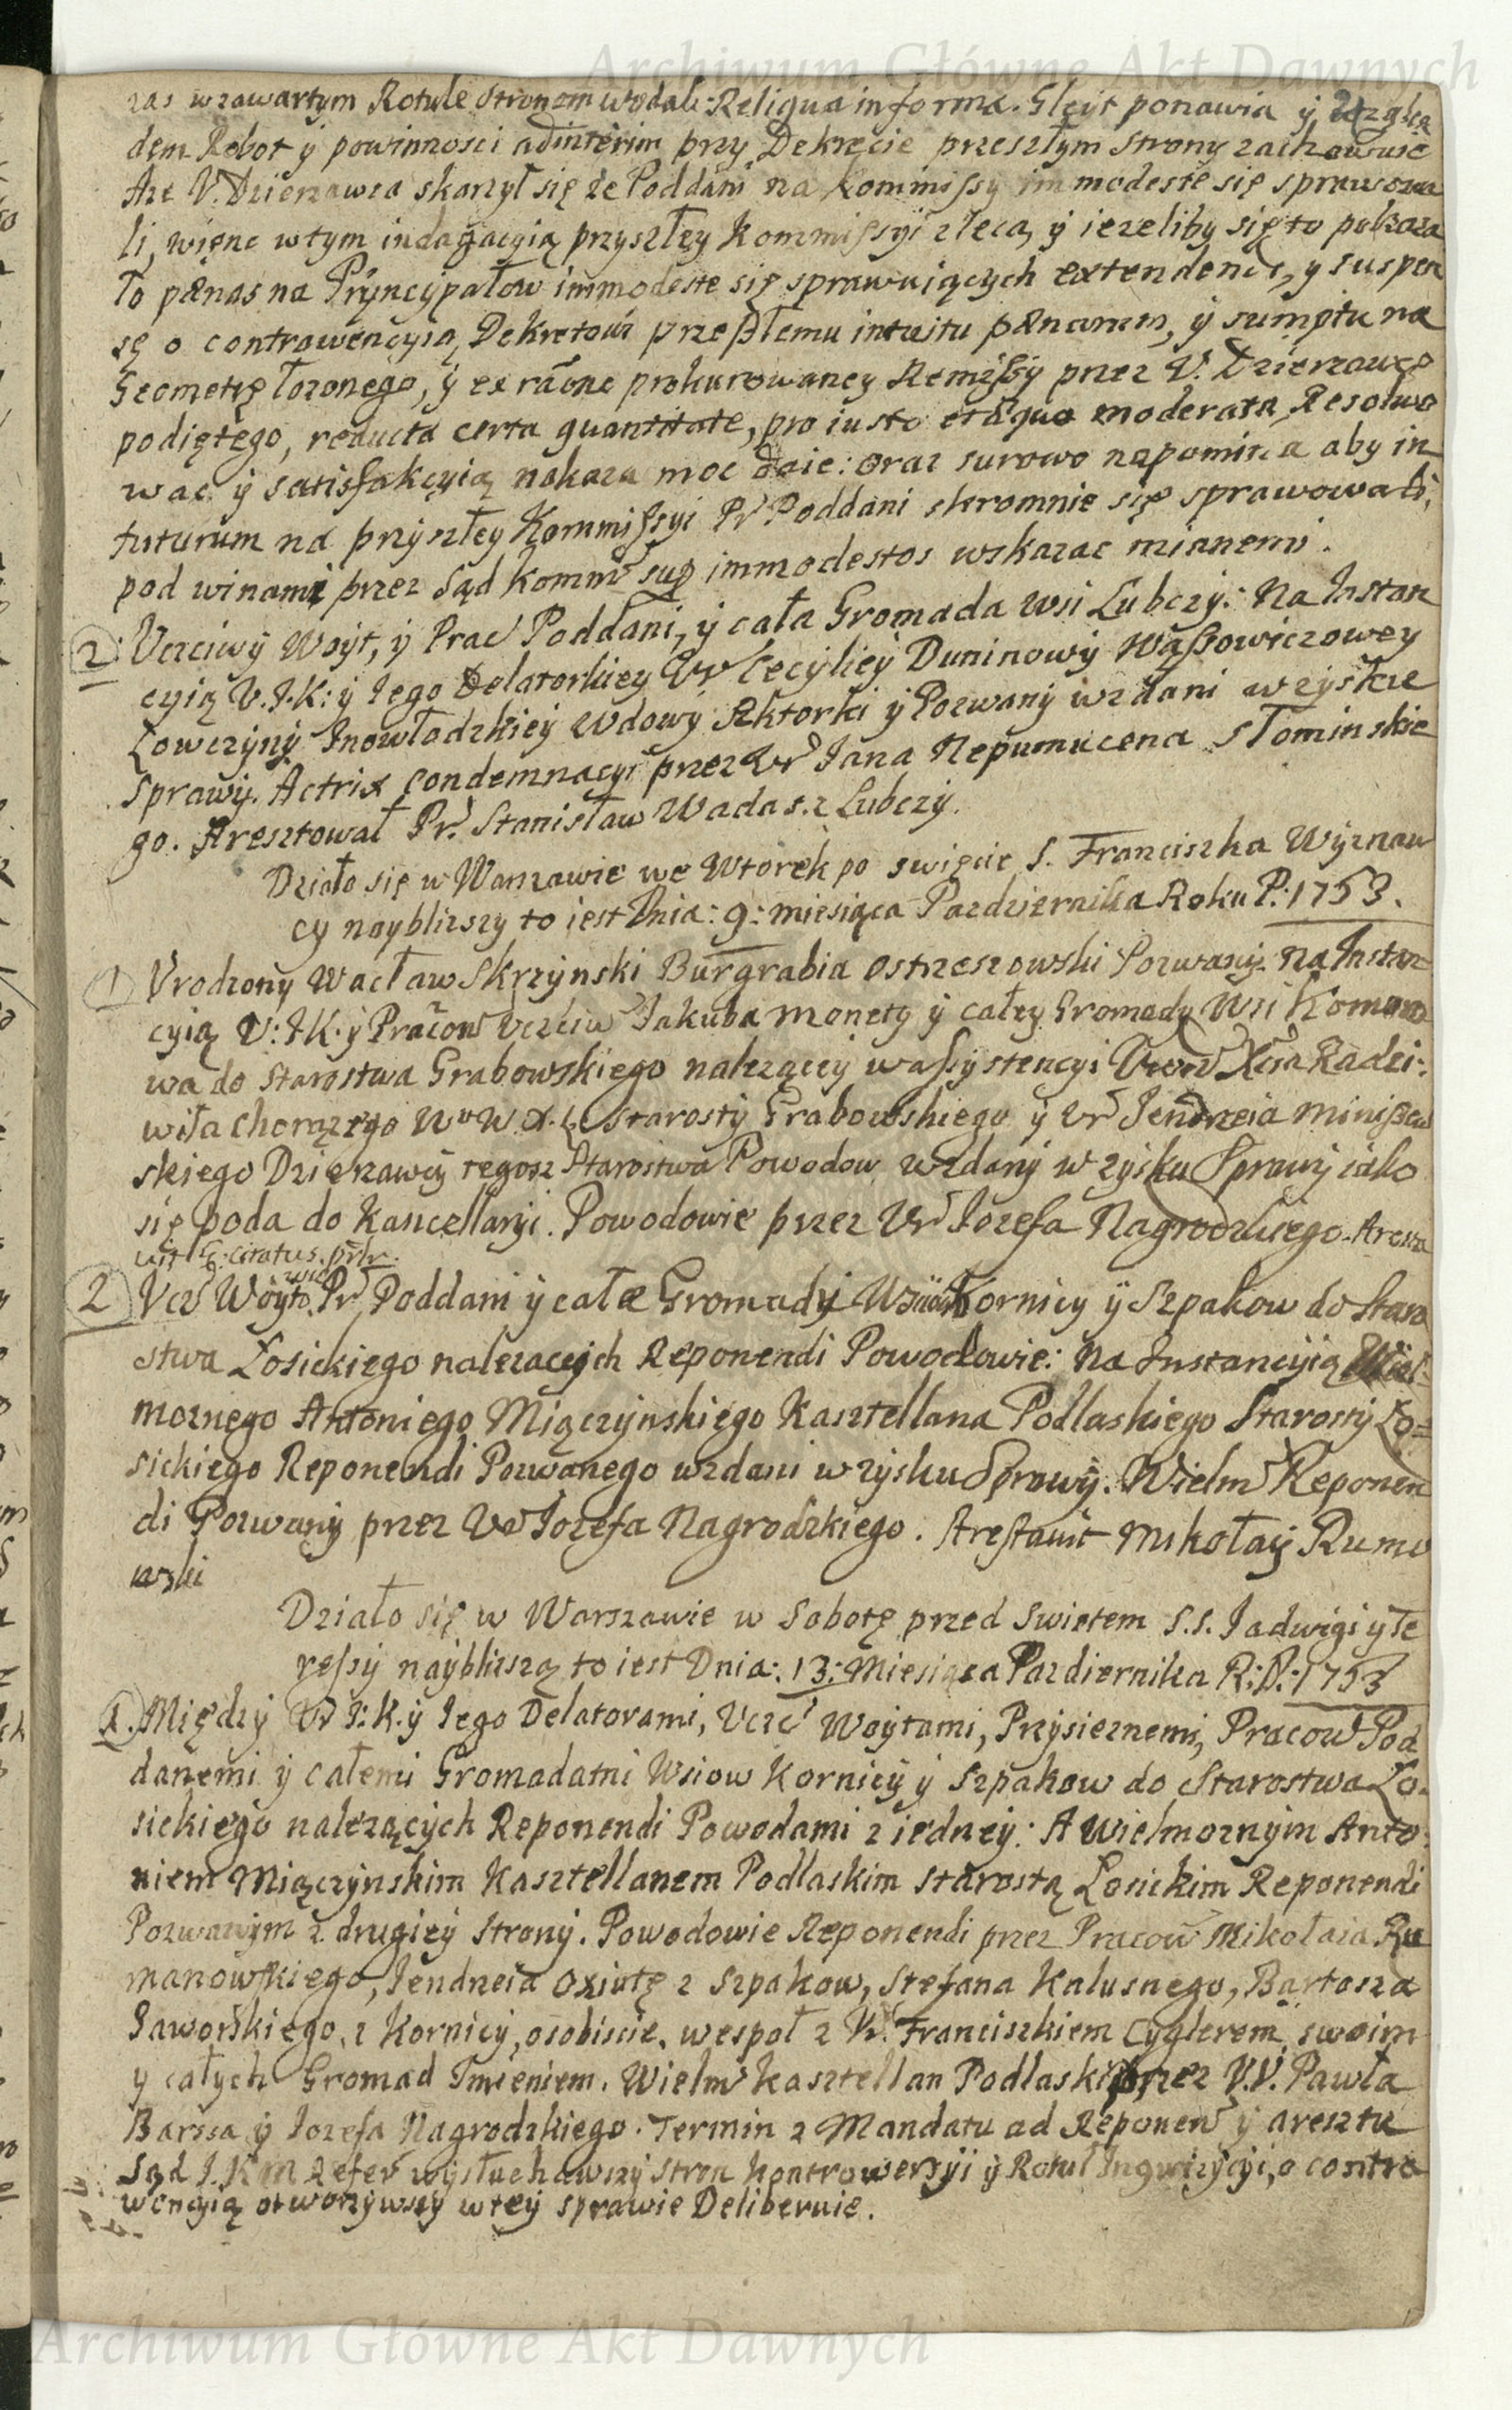 Archiwum Główne Akt Dawnych
zas w zawartym Rotule Stronom wydali: Reliqua in forma. Gleyt ponawia ÿ wzglę
dem Robot ÿ powinnosci ad interim przy Dekręcie przeszłym Strony zachowuie
Aże V. Dzierzawca skarzył się że Poddani na Kommissyi immodeste się sprawowa
li, więnc w tym indagacyią przyszłey Kommissyi zleca, ÿ iezeliby się to pokaza
ło pœnas na Pryncypałow immodeste się sprawuiących extendendi, y suspen
sę o contrawencyią Dekretowi przeszłemu intuitu pœnarum, ÿ sumptu na
Geometrę łozonego, ÿ ex raōne prokurowaney Remissy przez V. Dzierzawcę
podiętego, reducta certa quantitate, pro iusto et æquo moderata, Resolwo
wac ÿ satisfakcyią nakaza moc daie: oraz surowo napomina aby in
futurum na przyszłey Kommissyi Pr Poddani skromnie się sprawowali,
pod winami przez Sąd Komm̄ sup immodestos wskazac mianemi.
2 Vczciwÿ Woyt, ÿ Prac Poddani, ÿ cała Gromada wsi Lubczÿ: Na Instan
cyią V.J.K: ÿ Iego Delatorkiey Vr Cecyliey Duninowÿ Wąssowiczowey
Łowczynÿ Inowłodzkieÿ Wdowÿ Aktorki ÿ Pozwanÿ wzdani w zysku
Sprawÿ. Actrix condemnacyi przez Vr Jana Nepumucena Słominskie
go. Aresztował Pr. Stanisław Wadas z Lubczÿ.
Działo się w Warszawie we Wtorek po swięcie S. Franciszka Wyznaw
cy nayblizszy to iest Dnia: 9: miesiąca Pazdziernika Roku P: 1753.
1 Vrodzony Wacław Skrzynski Burgrabia Ostrzeszowski Pozwany. Na Instan
cyią V: J K. ÿ Pracow Vczciw Jakuba Monety ÿ całey Gromady Wsi Komoro
wa do Starostwa Grabowskiego nalezącey w assystencyi Xcia Radzi:
wiła Chorązego W. W. X. L. Starosty Grabowskiego ÿ Vr Jendrzeia Miniszew
skiego Dzierzawcÿ tegosz Starostwa Powodow wzdany w zysku Sprawÿ iako
się poda do Kancellaryi. Powodowie przez Vr Jozefa Nagrodzkiego. Aresta
wit G: citatus.
2 Vcz Woyto Pr Poddani ÿ całe Gromady Wsiow Kornicy ÿ Szpakow do Staro
stwa Łosickiego nalezacych Reponendi Powodowie: Na Instancyią Wiel:
moznego Antoniego Miączynskiego Kasztellana Podlaskiego Starosty Ło=
sickiego Reponendi Pozwanego wzdani w zysku Sprawÿ. Wielm Reponen
di Pozwany przez Vr Jozefa Nagrodzkiego. Arestawit Mikołaÿ Rumo
wski
Działo się w Warszawie w Sobotę przed swietem S.S. Jadwigi y Te
ressÿ nayblizszą to iest Dnia: 13: Miesiąca Pazdiernika R: P: 1753
1. Międzÿ Vr J: K. ÿ Iego Delatorami, Vczc Woytami, Przysieznemi, Pracow Pod
danemi ÿ całemi Gromadami Wsiow Kornicÿ ÿ Szpakow do Starostwa Ło.
sickiego nalezących Reponendi Powodami z iedneÿ: A Wielmoznym Anto:
niem Miączynskim Kasztellanem Podlaskim Starostą Łosickim Reponendi
Pozwanym z drugieÿ Stronÿ. Powodowie Reponendi przez Pracow Mikołaia Ru
manowskiego, Jendrzeia Oxiutę z Szpakow, Stefana Kalusnego, Bartosza
Jaworskiego, z Kornicÿ, osobiscie, wespoł z Vr. Franciszkiem Cyglerem, swoim
y całych Gromad Imieniem. Wielm Kasztellan Podlaski przez V.V. Pawła
Barssa ÿ Jozefa Nagrodzkiego. Termin z Mandatu ad Reponen ÿ aresztu
Sąd J.K M Refer wysłuchawszÿ Stron kontrowersyi ÿ Rotuł Inqwizycyi, o contra
wencyią otworzÿwszÿ w teÿ sprawie Deliberuie.
Archiwum Główne Akt Dawnych